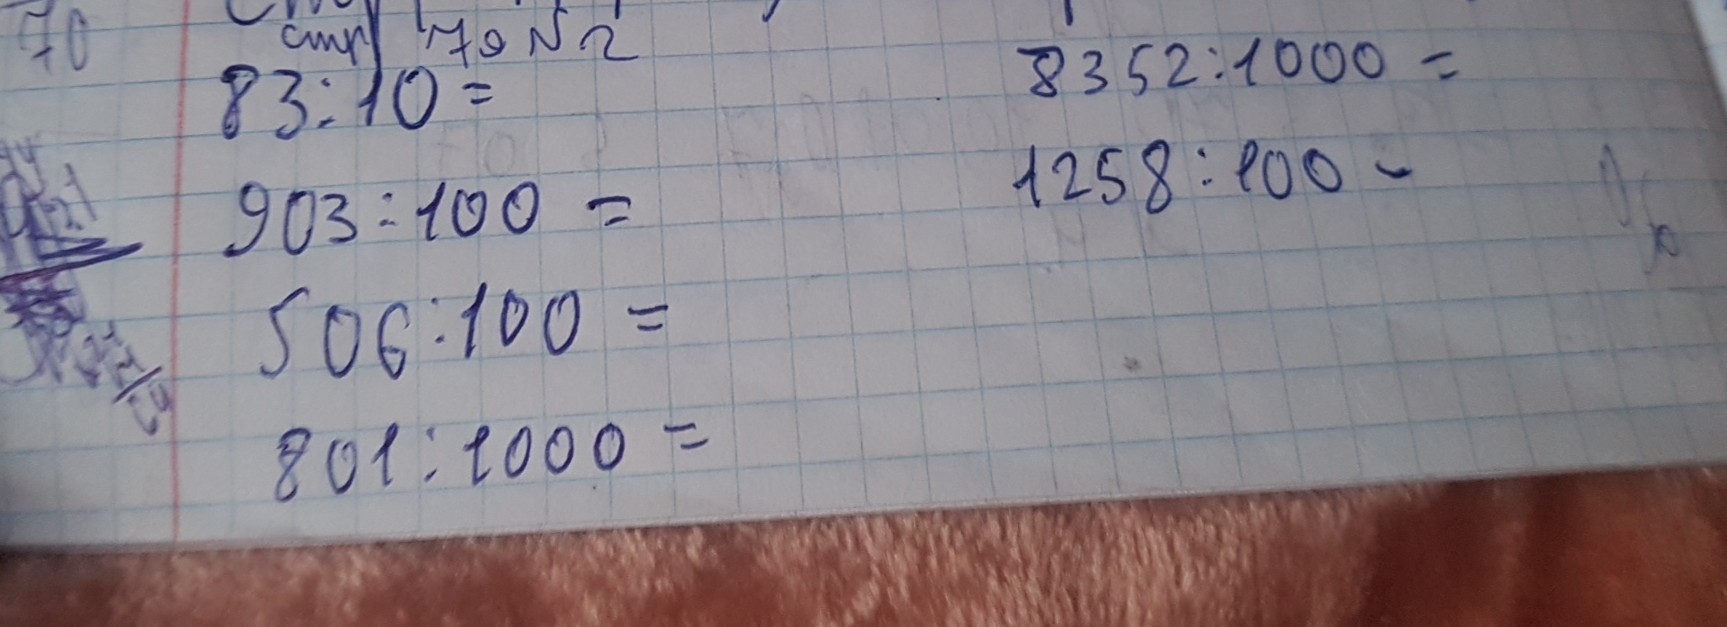 70
стр 70 N 2
83:10=
903:100=
506:100=
801:1000=
8352:1000=
1258:100-